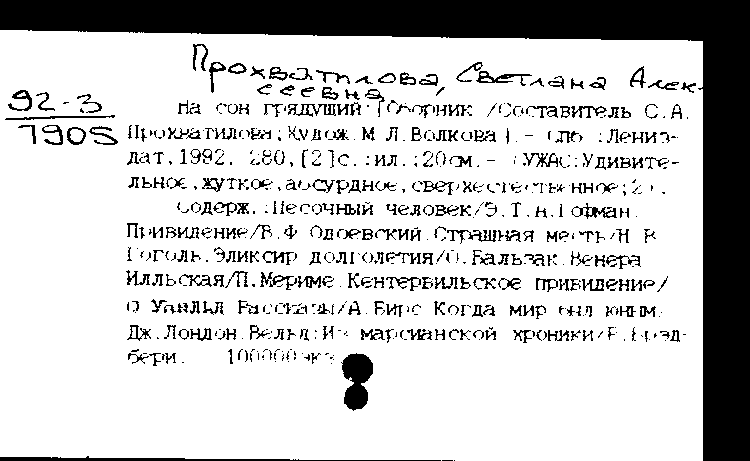 Прохватилова, Светлана Алек-
сеевна
92-3
7905
На сон грядущий:[Сборник /Составитель С.А.
Прохватилова;Худож.М.Л.Волкова].- СПб.:Лениз-
дат,1992. 280,[2]с.:ил.;20см.- (УЖАС:Удивите-
льное,жуткое,абсурдное,сверхестественное;2).
Содерж.:Песочный человек/Э.Т.А.Гофман.
Привидение/В.Ф.Одоевский.Страшная месть/Н.В.
Гоголь.Эликсир долголетия/О.Бальзак.Венера
Илльская/П.Мериме.Кентервильское привидение/
О.Уайльд.Рассказы/А.Бирс.Когда мир был юным.
Дж.Лондон.Вельд:Из марсианской хроники/Р.Брэд-
бери. 100000экз